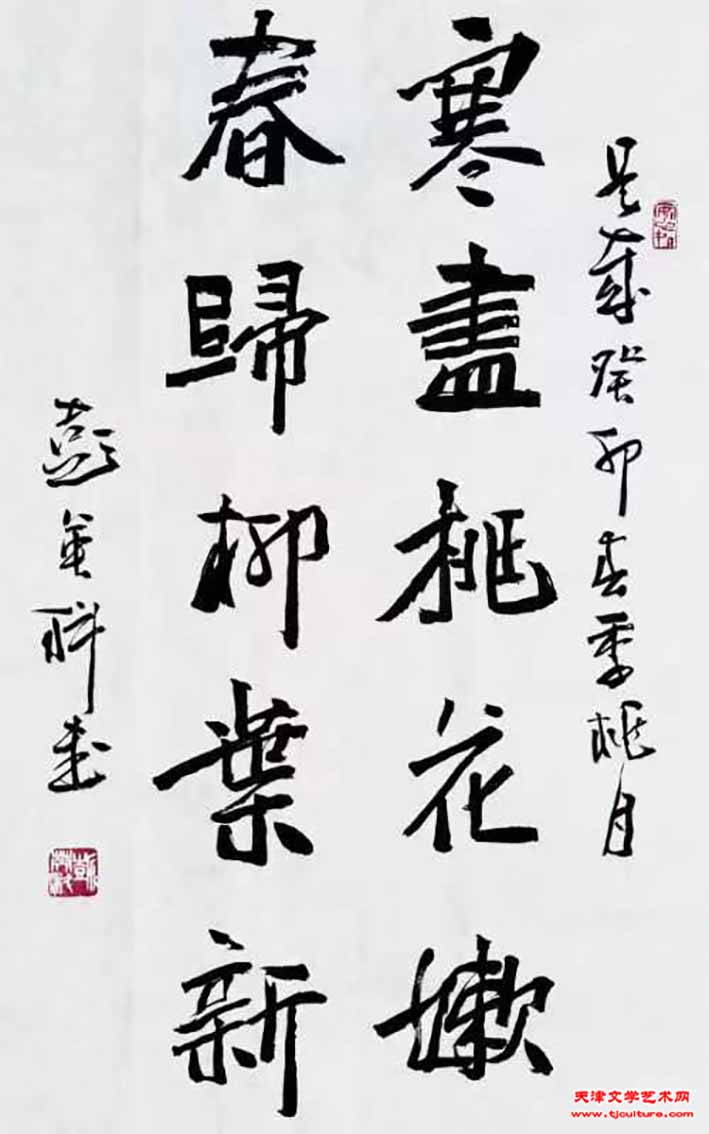 是歲癸卯春季桃月
寒盡桃花嫩
春歸柳葉新
彭英科書
天津文学艺术网
www.tjculture.com